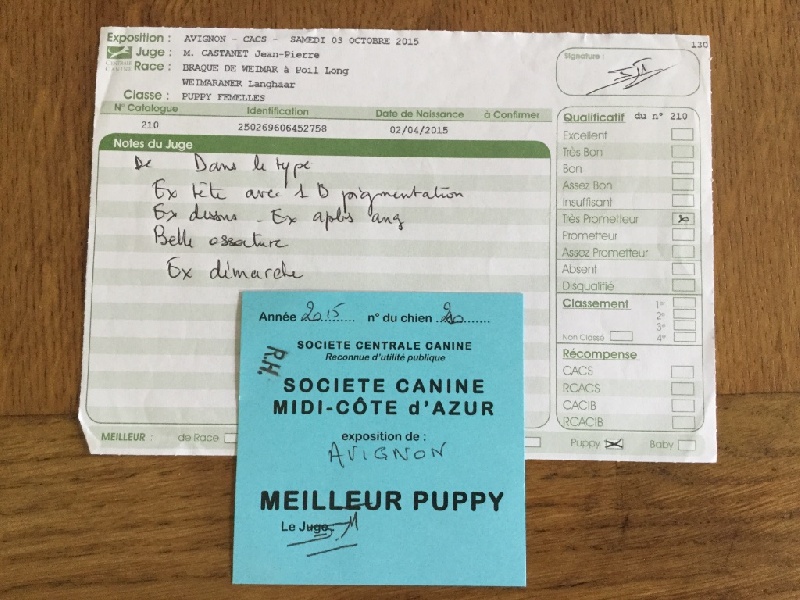 130
Exposition : AVIGNON - CACS - SAMEDI 03 OCTOBRE 2015
Juge : M. CASTANET Jean-Pierre
Race : BRAQUE DE WEIMAR à Poil Long
WEIMARANER Langhaar
Classe : PUPPY FEMELLES
Signature :
N° Catalogue Identification Date de Naissance à Confirmer
210 250269606452758 02/04/2015
Notes du Juge
De Dans le type
Ex tête avec 1 B pigmentation
Ex dessus - Ex aplbs ang
Belle ossature
Ex démarche
Qualificatif du n° 210
Excellent
Très Bon
Bon
Assez Bon
Insuffisant
Très Prometteur
Prometteur
Assez Prometteur
Absent
Disqualifié
Classement 1°
2°
3°
Non Classé 4°
Récompense
CACS
RCACS
CACIB
RCACIB
MEILLEUR : de Race Puppy Baby
Année 2015 n° du chien 210
SOCIETE CENTRALE CANINE
Reconnue d'utilité publique
R.H.
SOCIETE CANINE
MIDI-CÔTE d'AZUR
exposition de :
AVIGNON
MEILLEUR PUPPY
Le Juge